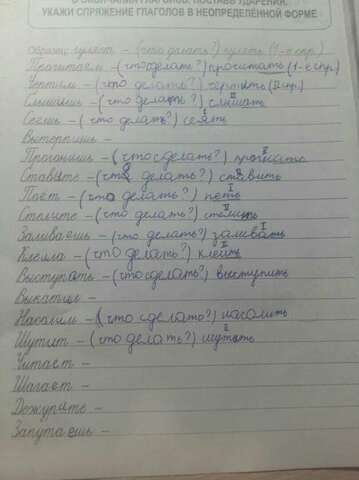 В ОКОНЧАНИЯ ГЛАГОЛОВ. ПОСТАВЬ УДАРЕНИЯ.
УКАЖИ СПРЯЖЕНИЕ ГЛАГОЛОВ В НЕОПРЕДЕЛЁННОЙ ФОРМЕ
Образец: гуляет - (что делать?) гулять (1-е спр.)
Прочитаем - (что сделать?) прочитать (1-е спр.)
Чертим - (что делать?) чертить (II спр.)
Слышишь - (что делать?) слышать II
Сеешь - (что делать?) сеять I
Вытерпишь -
Прогонишь - (что сделать?) II
Ставите - (что делать?) ставить II
Поёт - (что делать?) петь I
Стелите - (что делать?)
Заливаешь - (что делать?) заливать I
Клеила - (что делать?) клеить II
Выступать - (что сделать?) выступить
Выкатил -
(что сделать?)
Шутит - (что делать?) II
Читает -
Шагает -
Дежурите -
Запутаешь -